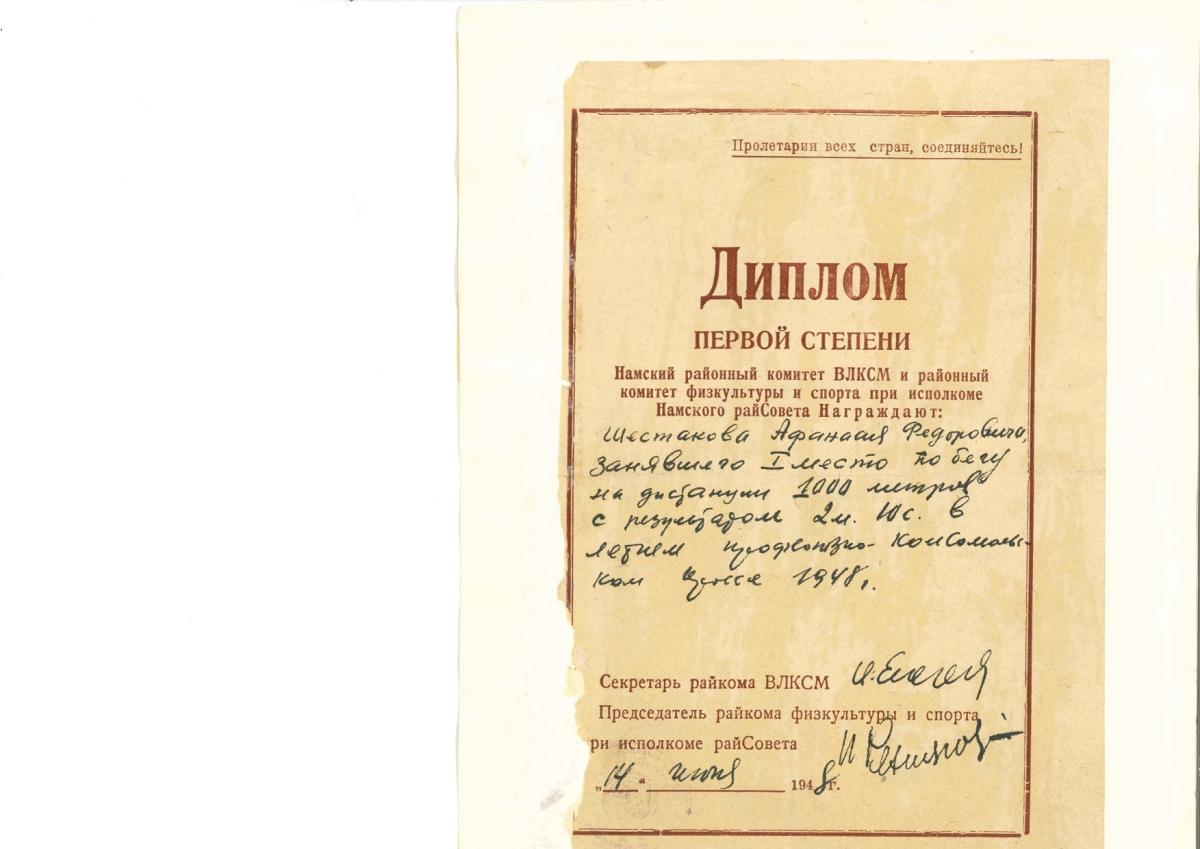 Пролетарии всех стран, соединяйтесь!
Диплом
ПЕРВОЙ СТЕПЕНИ
Намский районный комитет ВЛКСМ и районный
комитет физкультуры и спорта при исполкоме
Намского райСовета Награждают:
Шестакова Афанасия Федоровича,
занявшего I место по бегу
на дистанции 1000 метров
с результатом 2м. 10с. в
летнем профсоюзно-комсомольс-
ком кроссе 1948г.
Секретарь райкома ВЛКСМ
Председатель райкома физкультуры и спорта
ри исполкоме райСовета
„14“ июня 1948г.